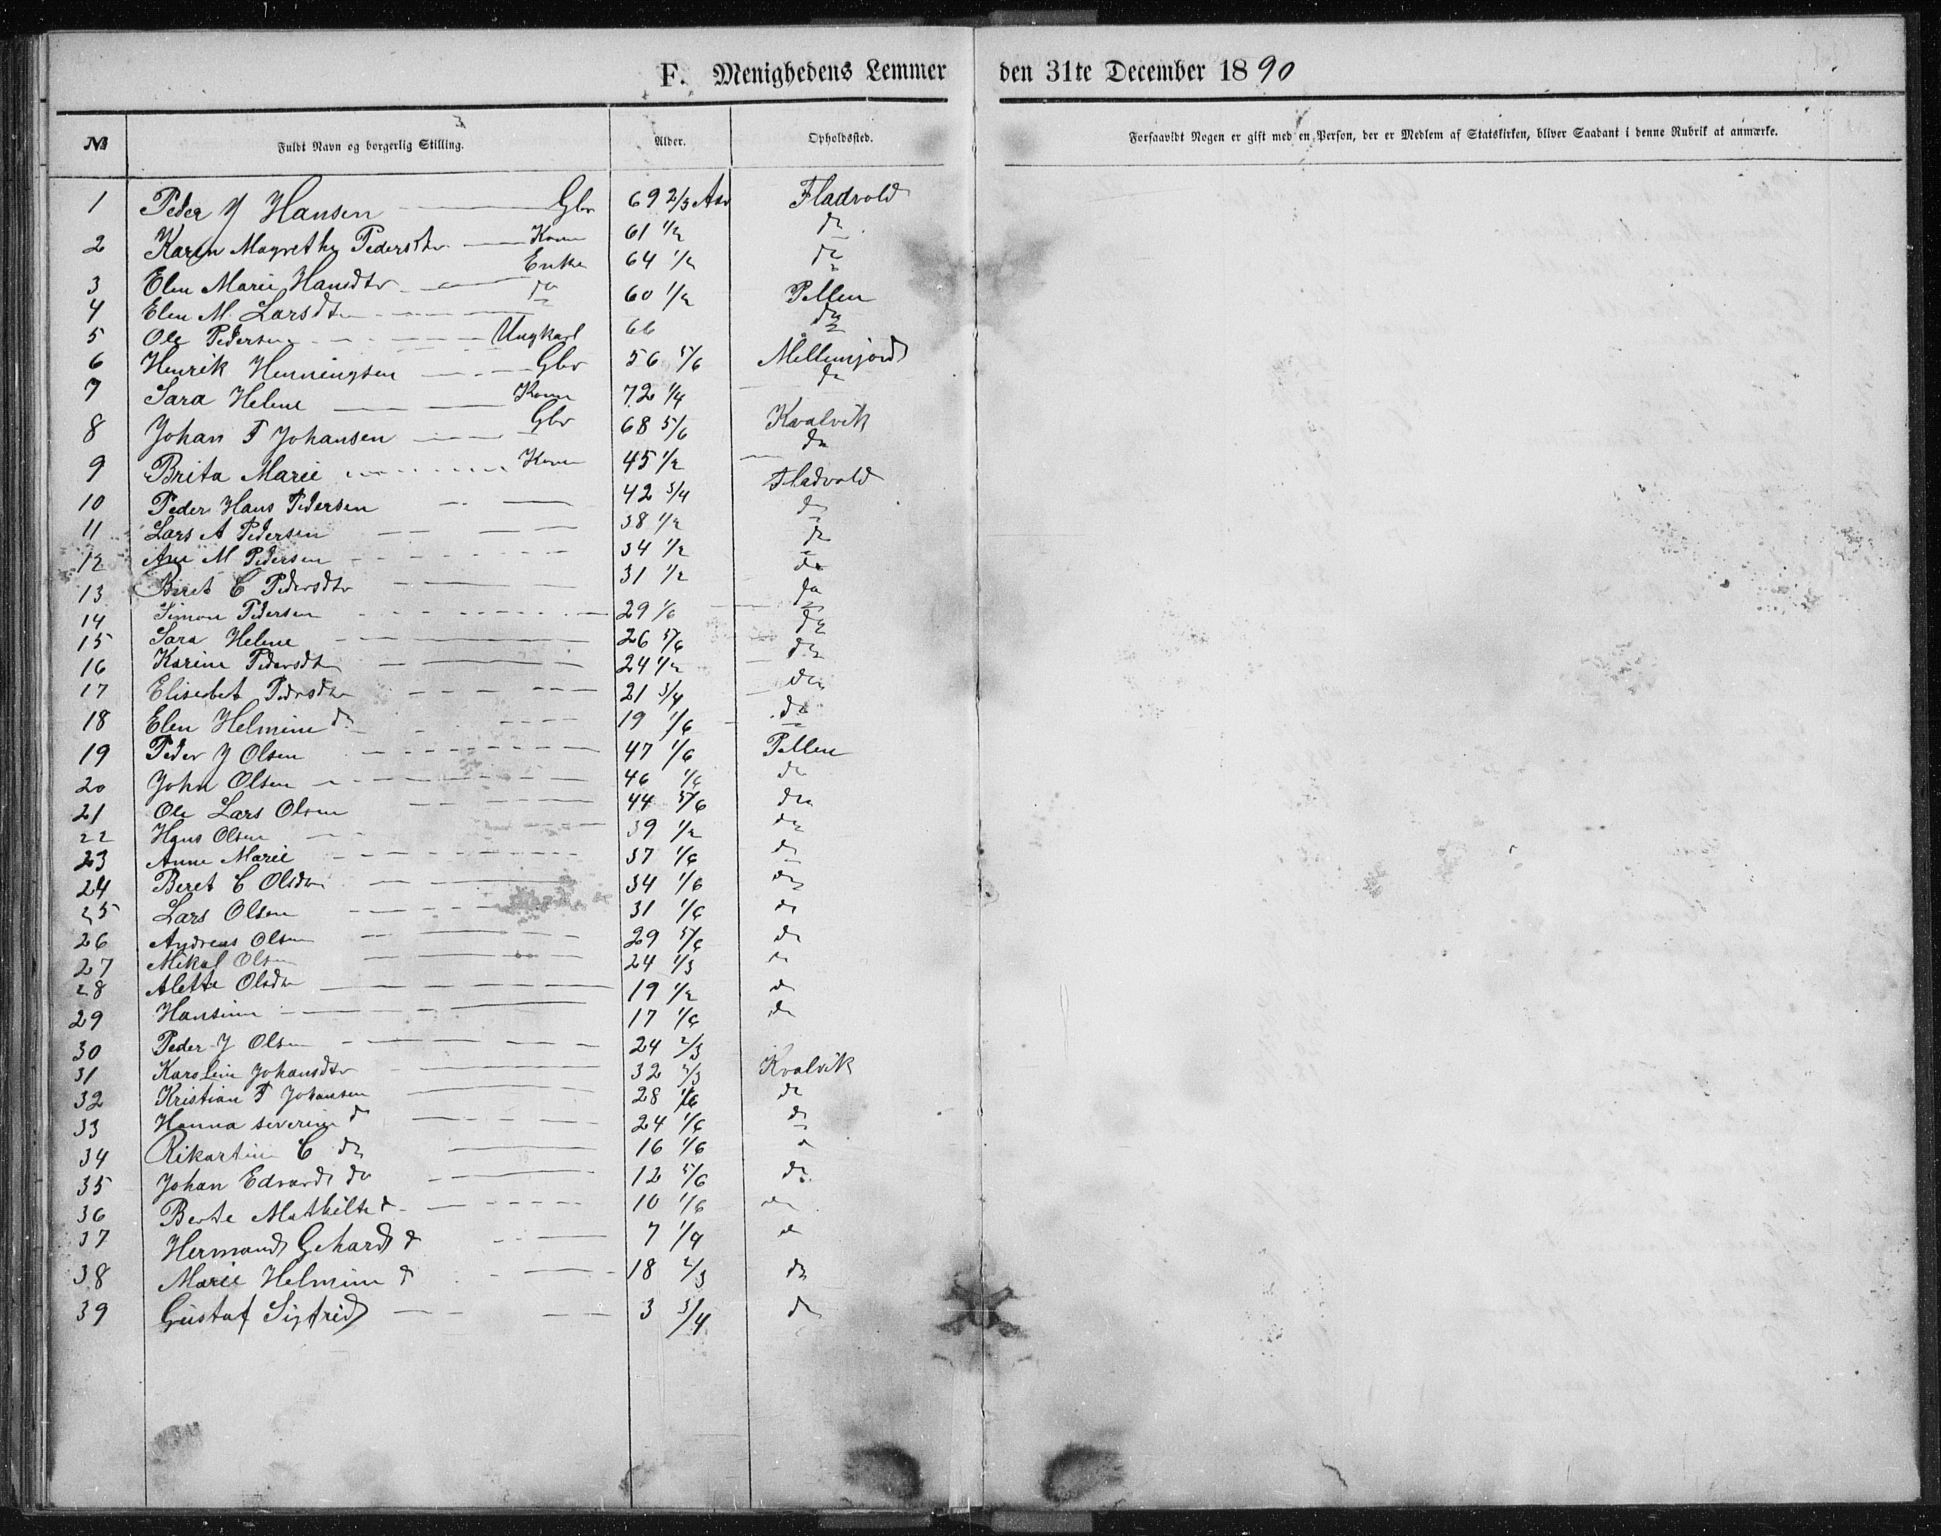 F. Menighedens Lemmer den 31te December 1890
№ Fuldt Navn og borgerlig Stilling. Alder. Opholdssted. Forsaavidt Nogen er gift med en Person, der er Medlem af Statskirken, bliver Saadant i denne Rubrik at anmærke.
1 Peder J Hansen Gbr 69 2/3 Fladvold
2 Karen Magrethe Pedersdtr Kone 61 1/2 do
3 Elen Marie Hansdtr Enke 64 1/2 do
4 Elen M. Larsdtr do 60 1/2 Pollen
5 Ole Pedersen Ungkarl 66 do
6 Henrik Henningsen Gbr 56 5/6 Mellemjord
7 Sara Helene Kone 72 1/4 do
8 Johan F Johansen Gbr 68 5/6 Kvalvik
9 Brita Marie Kone 45 1/2 do
10 Peder Hans Pedersen 42 3/4 Fladvold
11 Lars A Pedersen 38 1/2 do
12 Ane M Pedersen 34 1/2 do
13 Beret C Pedersdtr 31 1/2 do
14 Simon Pedersen 29 1/6 do
15 Sara Helene 26 5/6 do
16 Karine Pedersdtr 24 1/2 do
17 Elisebet Pedrsdtr 21 3/4 do
18 Elen Helmine do 19 1/6 do
19 Peder J Olsen 47 1/6 Pollen
20 John Olsen 46 1/6 do
21 Ole Lars Olsen 44 5/6 do
22 Hans Olsen 39 1/2 do
23 Anne Marie 37 1/6 do
24 Beret C Olsdtr 34 1/6 do
25 Lars Olsen 31 1/6 do
26 Andreas Olsen 29 5/6 do
27 Mikal Olsen 24 1/3 do
28 Alette Olsdtr 19 1/2 do
29 Hansine 17 1/6 do
30 Peder J Olsen 24 2/3
31 Karoline Johansdtr 32 2/3 Kvalvik
32 Kristian F Johansen 28 1/6 do
33 Hanna severine do 24 1/6 do
34 Rikartine C do 16 1/6 do
35 Johan Edvard do 12 5/6 do
36 Berte Mathilte do 10 1/6 do
37 Hermand Gehard do 7 1/4 do
38 Marie Helmine do 18 2/3 do
39 Gustaf Sigfrid 3 3/4 do